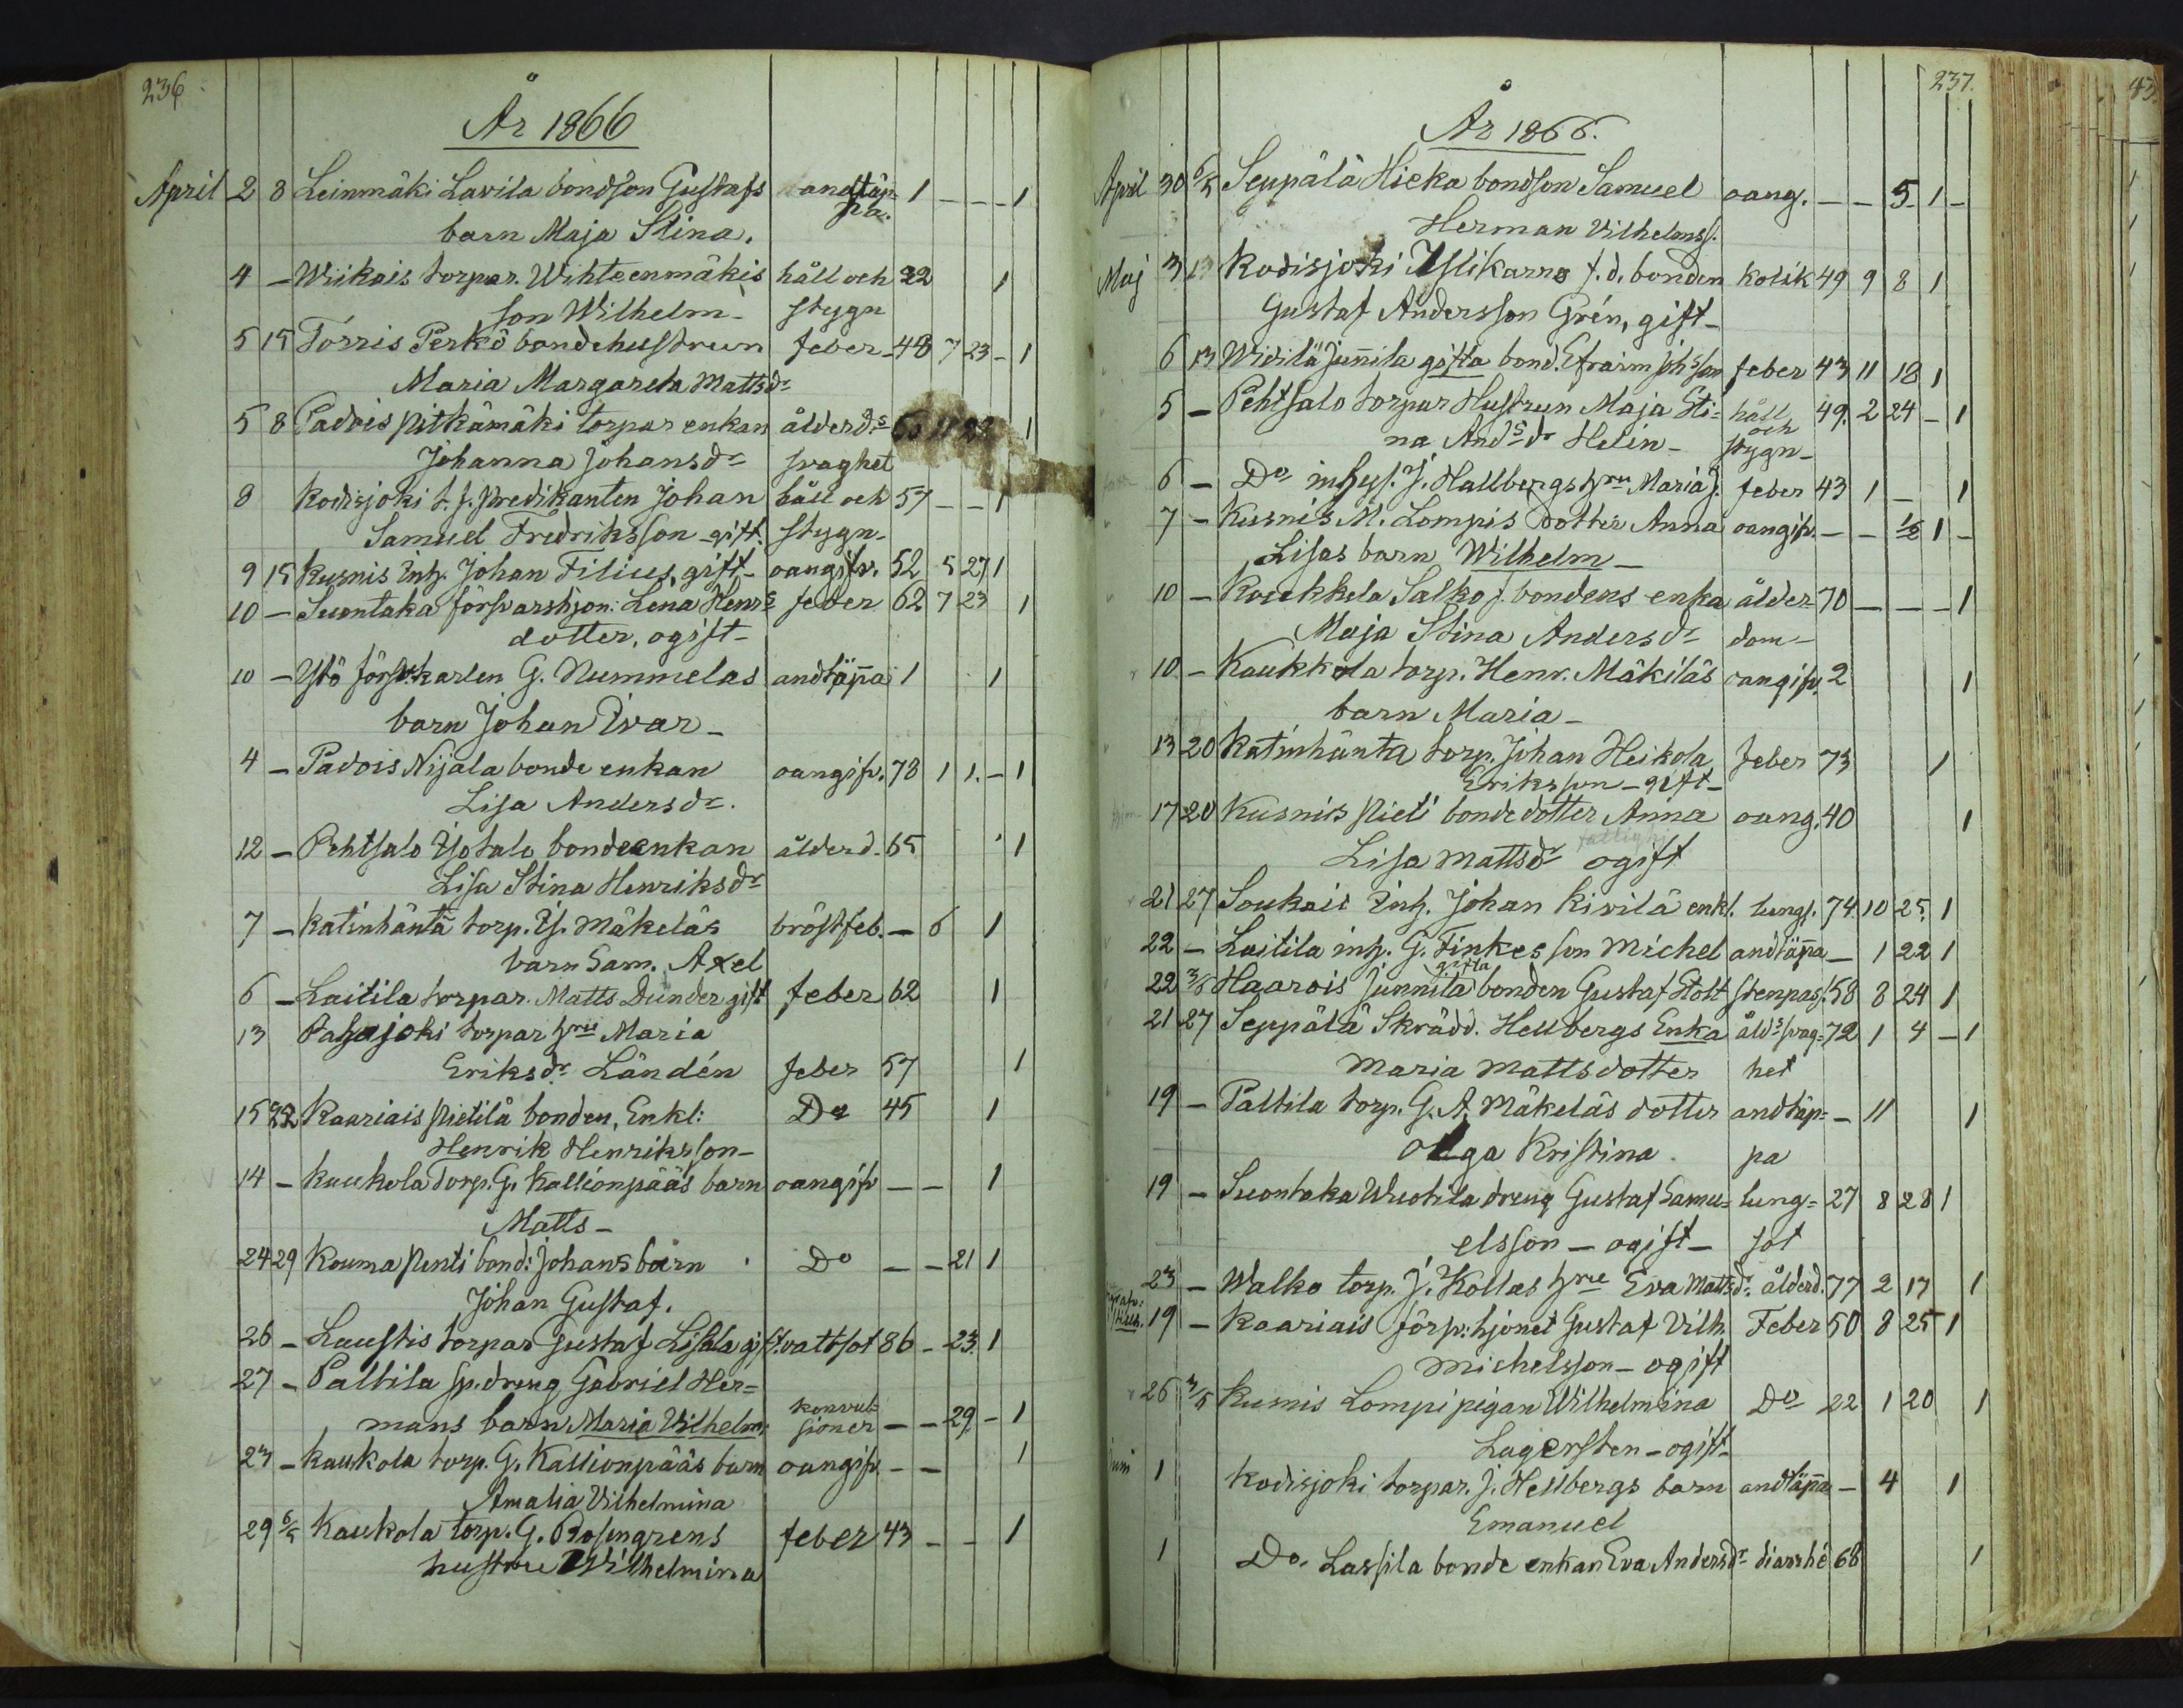 236
År 1866
April 2 8 Leinmäki Lavila bondson Gustafs andtäp- 1 - - - 1
barn Maja Stina. pa.
4 - Wiikais torpar. Wihteenmäkis håll och 32 1
son Wilhelm- stygn
5 15 Torris Perkö bondehustrun feber 48 7 23 - 1
Maria Margareta Mattsdr
5 8 Padois Pitkämäki torpar enkan ålderds 1
Johanna Johansdr svaghet
8 Kodisjoki f. f. predikanten Johan håll och 57 - - 1
Samuel Fredriksson - gift. stygn-
9 15 Kusnis Inh. Johan Filius, gift- oangifv. 52 5 27 1
10 - Suontaka försvarshjon: Lena Henrs feber 62 7 23 1
dotter, ogift-
10 - Ytö försv.karlen G. Nummelas andtäpa 1 1
barn Johan Ivar-
4 - Padois Nijala bonde enkan oangifv. 78 1 1. - 1
Lisa Andersdr.
12 - Pehtsalo Isotalo bondeenkan ålderd. 65 1
Lisa Stina Henriksdr
7 - Katinhäntä torp. Is. Mäkeläs bröstfeb. - 6 1
barn Sam. Axel
6 - Laitila torpar. Matts Dunder gift feber 62 1
13 Pahajoki torpar hru Maria
Eriksdr. Ländén feber 57 1
15 22 Kaariais Pietilä bonden, Enkl: Do 45 1
Henrik Henriksson-
14 - Kaukola Torp. G. Kallionpääs barn oangifv - - 1
Matts-
24 29 Kouma Penti bond: Johans barn Do - - 21 1
Johan Gustaf.
26 - Laustis torpar Gustaf Lisala gift. vattsot 86 - 23. 1
27 - Paltila sp.dreng Gabriel Her=
mans barn Maria Vilhelm: konvul- sioner - - 29 - 1
23 - Kaukola torp. G. Kallionpääs barn oangifv - - 1
Amalia Vilhelmina
29 6/5 Kaukola torp. G. Rosengrens feber 43 - - 1
hustru Wilhelmina
237.
År 1866.
April 30 6/5 Seppälä Hieka bondson Samuel oang. - - 5 1 -
Herman Vilhelmss.
Maj 3 13 Kodisjoki Ylikarro f.d. bonden kolik 49 9 8 1
Gustaf Andersson Grén, gift-
6 13 Widilä Junnila gifta bond. Efraim Johsson feber 43 11 18 1
5 - Pehtsalo torpar Hustrun Maja Sti= håll 49. 2 24 - 1
na Andsdr Helin- och stygn-
6 - Do inhys. J. Hallbergs hru Maria J. feber 43 1 - 1
7 - Kusnis M. Lompis dotter Anna oangifv. - - 1/2 1 -
Lisas barn Wilhelm-
10 - Koukkela Salko f. bondens enka ålder= 70 - - - 1
Maja Stina Andersdr dom-
10 - Kaukkola torp. Henr. Mäkiläs oangifv. 2 1
barn Maria-
13 20 Katinhänta torp. Johan Heikola feber 73 1
Eriksson - gift-
17 20 Kusnis Pieti bonde dotter Anna oang. 40 1
Lisa Mattsdr ogift
21 27 Soukais Inh. Johan Kivilä enkl. lungs. 74 10 25. 1
22 - Laitila inh. G. Finkes son Michel andtäppa - 1 22 1
22 3/6 Haarois Junnila gifta bonden Gustaf Stolt stenpas. 58 8 24 1
21 27 Seppälä Skrädd. Hellbergs Enka ålds svag= 72 1 4 - 1
Maria Mattsdotter het
19 - Paltila torp. G. A. Mäkeläs dotter andtäp= - 11 1
Olga Kristina. pa
19 - Suontaka Wuotila dreng Gustaf Samu= lung= 27 8 28 1
elsson - ogift- sot
23 - Walko torp. J. Kollas hru Eva Mattsdr. ålderd. 77 2 17 1
19 - Kaariais försv:hjonet Gustaf Vilh. Feber 50 8 25 1
Michelsson - ogift
26 3/6 Kusnis Lompi pigan Wilhelmina Do 22 1 20 1
Lagersten - ogift-
Juni 1 Kodisjoki torpar. J. Hellbergs barn andtäppa - 4 1
Emanuel
1 Do. Lassila bonde enkan Eva Andersdr diarrhé 68 1
43.